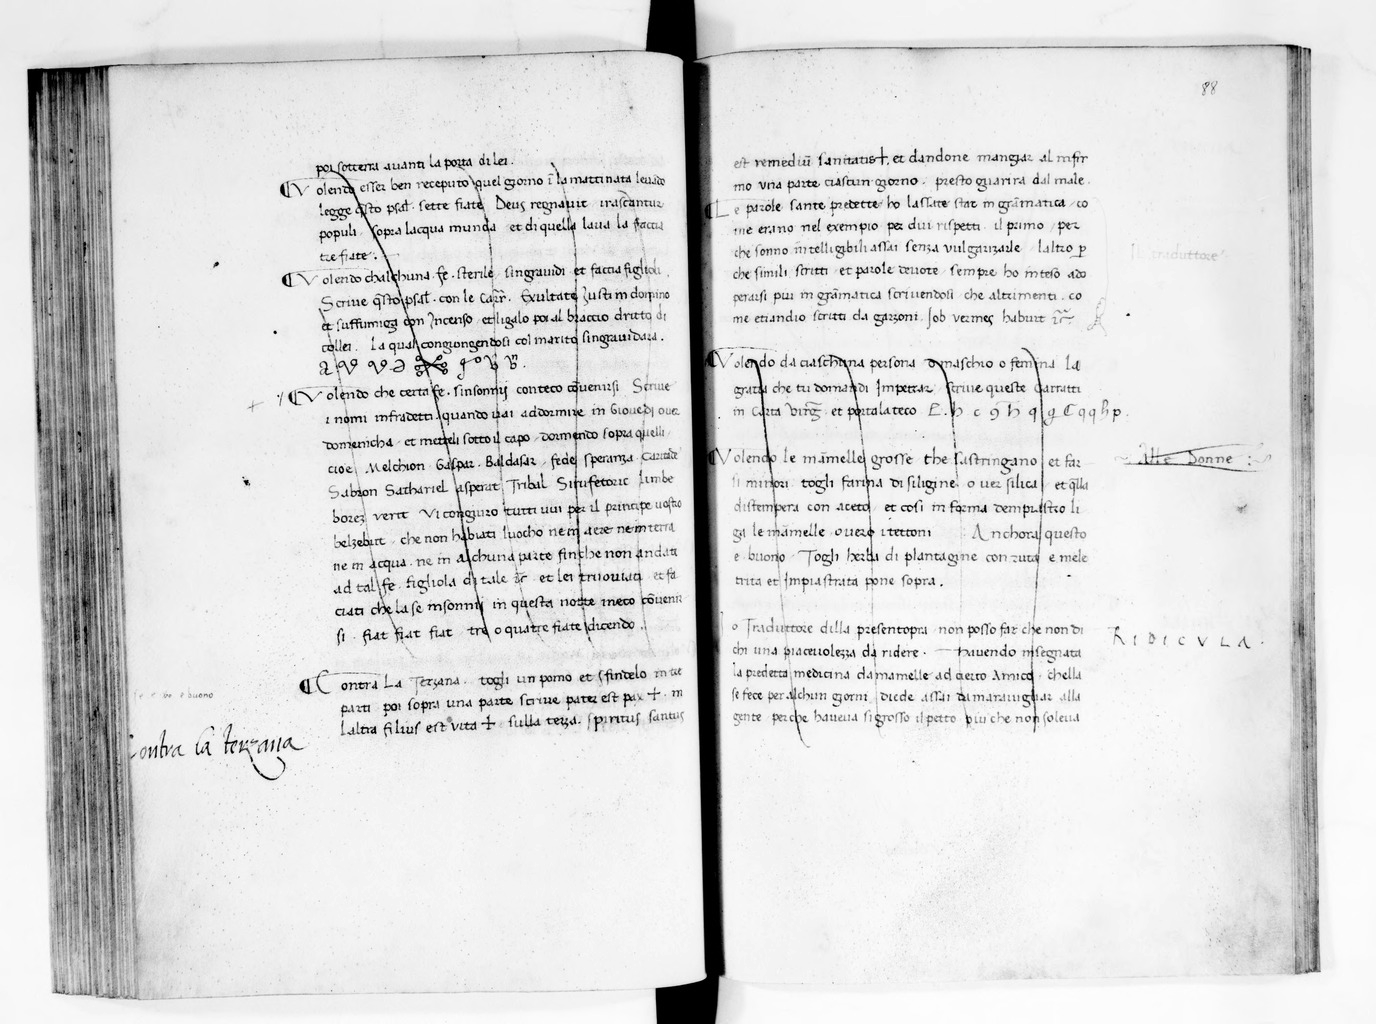 poi sotterra auanti la porta di lei.
Volendo esser ben receputo quel giorno ĩ la mattinata leuado
legge q̃sto psal̃. sette fiate Deus regnauit irascãntur
populi. sopra lacqua munda et di quella laua la faccia
tre fiate.
Volendo chalchuna fe. sterile singrauidi et faccia figlioli.
Scriue q̃sto psal̃. con le Carr̃. Exultate Iusti in domino
et suffumiga con Incenso et ligalo poi al braccio dritto di
collei. La qual congiongendosi col marito singrauidara.
Volendo che certa fe. sinsonnij con teco cõuenirsi Scriue
i nomi infradetti quando uai addormire in Giouedi ouer
domenicha et metteli sotto il capo dormendo sopra quelli
cioe Melchion Gaspar Baldasar fede speranza Caritade
Sabron Sathariel asperat Tribal Sirufetoric Limbe
borez vertt Vi congiuro tutti uui per il principe uostro
belzebut che non habiati luocho ne in aere ne in terra
ne in acqua ne in alchuna parte finche non andati
ad tal fe. figliola di tale et lei trouiati et fa
ciati che la se insonnij in questa notte meco cõuenir
si. fiat fiat fiat tre o quatre fiate dicendo.
Contra La Terzana. togli un pomo et sfindelo in tre
parti poi sopra una parte scriue pater est pax ✝. in
laltra filius est vita ✝ sulla terza. spiritus santus
e buono
Contra la terzana
88
est remediũ sanitatis ✝. et dandone mangiar al infir
mo vna parte ciascun giorno. presto guarira dal male.
Le parole sante predette ho lassate stat in grãmatica co
me erano nel exempio per dui rispetti. il primo per
che sonno intelligibili assai senza vulgarizarle laltro p̱
che simili scritti et parole deuote sempre ho inteso ado
perarsi pur in grãmatica scriuendosi che altrimenti. co
me etiandio scritti da garzoni. Iob vermes habuit
Il traduttore
Volendo da ciaschuna persona o maschio o femina La
gratia che tu domandi Impetrar scriue queste Carratti
in Carta Virg̃. et portala teco
Volendo le mãmelle grosse che sastringano et far
si minori togli farina di siligine o uer silica et q̃lla
distempera con aceto et cosi in forma dempiastro li
ga le mãmelle ouero i tettoni Anchora questo
e buono Togli herba di plantagine con ruta e mele
trita et Impiastrata pone sopra.
Alle Donne
Io Traduttore dilla presentopra non posso far che non di
chi una piaceuolezza da ridere. Hauendo insegnata
la predetta medicina da mamelle ad certo Amico chella
se fece per alchun giorni diede assai da marauigliar alla
gente perche haueua si grosso il petto piu che non soleua
RIDICVLA.